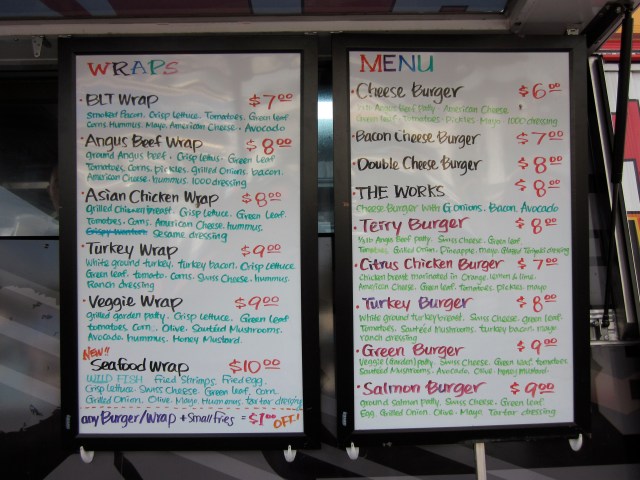 WRAPS
BLT Wrap $7.00
Smoked Bacon. Crisp Lettuce. Tomatoes. Green Leaf
Corns. Hummus. Mayo. American Cheese. Avocado
Angus Beef Wrap $8.00
ground Angus beef. Crisp Lettus. Green Leaf
Tomatoes. Corns. pickles. grilled Onions. bacon.
American Cheese. hummus. 1000 dressing
Asian Chicken Wrap $8.00
Grilled Chicken breast. Crisp Lettuce. Green Leaf.
Tomatoes. Corns. American Cheese. hummus.
Sesame dressing
Turkey Wrap $9.00
White ground turkey. turkey bacon. Crisp Lettuce
Green Leaf. tomato. Corns. Swiss Cheese. hummus
Ranch dressing
Veggie Wrap $9.00
grilled garden patty. Crisp Lettuce. Green Leaf
tomatoes. Corn. Olive. Sautéed Mushrooms.
Avocado. hummus. Honey Mustard.
New!!
Seafood Wrap $10.00
WILD FISH Fried Shrimps. Fried egg.
Crisp Lettuce. Swiss Cheese. Green Leaf. Corn
Grilled Onion. Olive. Mayo. Hummus. tartar dressing
any Burger/Wrap + Small fries = $1.00 OFF!
MENU
Cheese Burger $6.00
Angus Beef Patty American Cheese
Green Leaf. Tomatoes. pickles. Mayo. 1000 dressing
Bacon Cheese Burger $7.00
Double Cheese Burger $8.00
THE WORKS $8.00
Cheese Burger with G.onions. Bacon. Avocado
Terry Burger $8.00
Angus Beef patty. Swiss Cheese. Green Leaf
Tomatoes. Grilled Onion. Pineapple. mayo. dressing
Citrus Chicken Burger $7.00
chicken breast marinated in Orange. lemon & lime.
American Cheese. Green Leaf. Tomatoes. pickles. mayo
Turkey Burger $8.00
White ground turkey breast. Swiss Cheese. green Leaf.
Tomatoes. Sautéed Mushrooms. turkey bacon. mayo
ranch dressing
Green Burger $9.00
Veggie (Garden) patty. Swiss Cheese. Green Leaf. tomatoes.
Sautéed Mushrooms. Avocado. Olive. honey mustard
Salmon Burger $9.00
ground Salmon patty. Swiss Cheese. Green Leaf
Egg. Grilled Onion. Olive. Mayo. Tartar dressing